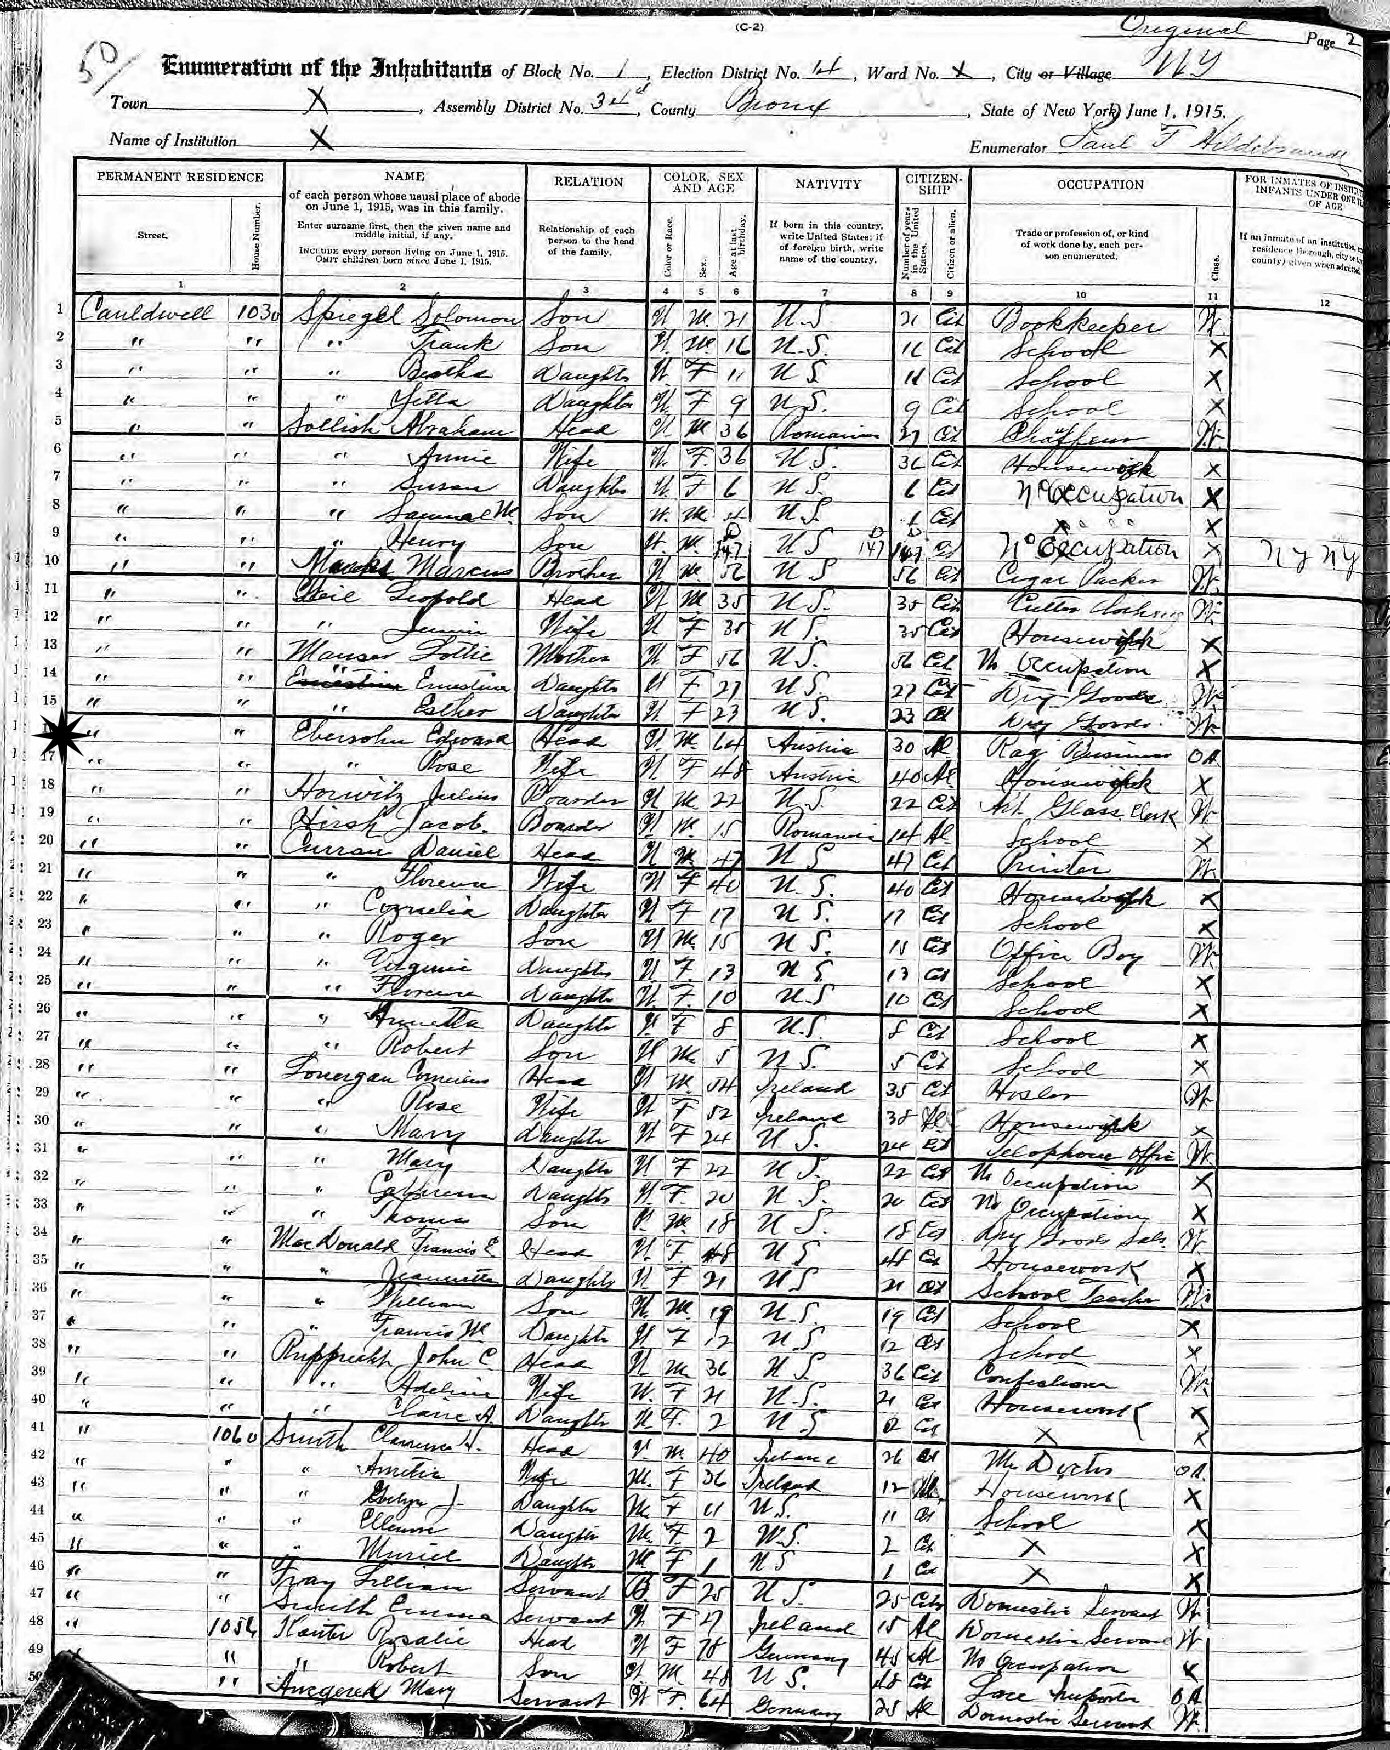 (C-2)
Original Page 2
50/
Enumeration of the Inhabitants of Block No. 1, Election District No. 4, Ward No. X, City or Village NY
Town X, Assembly District No. 34d, County Bronx, State of New York) June 1, 1915.
Name of Institution X Enumerator Paul F Hildebrand
PERMANENT RESIDENCE NAME RELATION COLOR, SEX AND AGE NATIVITY CITIZENSHIP OCCUPATION FOR INMATES OF INFANTS UNDER ONE OF AGE
Street. House Number. of each person whose usual place of abode on June 1, 1915, was in this family. Enter surname first, then the given name and middle initial, if any. INCLUDE every person living on June 1, 1915. OMIT children born since June 1, 1915. Relationship of each person to the head of the family. Color or Race. Sex. Age at last birthday. If born in this country, write United States; if of foreign birth, write name of the country. Number of years in the United States. Citizen or alien. Trade or profession of, or kind of work done by, each person enumerated. Class. If an inmate of an institution,
1 2 3 4 5 6 7 8 9 10 11 12
1 Cauldwell 1030 Spiegel Solomon Son W M 21 U.S 21 Cit Bookkeeper W
2 " " " Frank Son W M 16 U.S. 16 Cit School X
3 " " " Bertha Daughter W F 11 U S. 11 Cit School X
4 " " " Yetta Daughter W F 9 U.S. 9 Cit School X
5 " " Sollish Abraham Head W M 36 Romania Cit Chaffeur W
6 " " " Annie Wife W F 36 U.S. 36 Cit Housework X
7 " " " Susan Daughter W F 6 U.S. 6 Cit No Occupation X
8 " " " Samuel M. Son W M 4 U.S. 4 Cit X " " X
9 " " " Henry Son W M U S Cit No Occupation X N Y N Y
10 " " Marcus Brother W M 56 U S 56 Cit Cigar Packer W
11 " " Weil Leopold Head W M 35 U.S. 35 Cit Cutter W
12 " " " Jennie Wife W F 35 U.S. 35 Cit Housework X
13 " " Manser Lottie Mother W F 56 U.S. 56 Cit No Occupation X
14 " " " Ernestine Daughter W F 27 U.S. 27 Cit Dry Goods W
15 " " " Esther Daughter W F 23 U.S. 23 Cit Dry Goods W
" " Ebersohn Edward Head W M 64 Austria 30 Al Rag Business OA
17 " " " Rose Wife W F 48 Austria 40 Al Housework X
18 " " Horwitz Julius Boarder W M 22 U.S. 22 Cit Art Glass Clerk W
19 " " Hirsh Jacob Boarder W M 15 Romania 14 Al School X
20 " " Curran Daniel Head W M 47 U S 47 Cit Printer W
21 " " " Florence Wife W F 40 U.S. 40 Cit Housework X
22 " " " Cornelia Daughter W F 17 U S. 17 Cit School X
23 " " " Roger Son W M 15 U S. 15 Cit Office Boy W
24 " " " Virginia Daughter W F 13 U S 13 Cit School X
25 " " " Florence Daughter W F 10 U.S 10 Cit School X
26 " " " Daughter W F 8 U.S 8 Cit School X
27 " " " Robert Son W M 5 U S. 5 Cit School X
28 " " Lonergan Cornelius Head W M 54 Ireland 35 Cit W
29 " " " Rose Wife W F 52 Ireland 38 Al Housework X
30 " " " Mary Daughter W F 24 U S. 24 Cit Telephone Offic W
31 " " " Mary Daughter W F 22 U S. 22 Cit No Occupation X
32 " " " Catherine Daughter W F 20 U S. 20 Cit No Occupation X
33 " " " Thomas Son W M 18 U S. 18 Cit Dry Goods Sals. W
34 " " MacDonald Francis E Head W F 48 U S 48 Cit Housework X
35 " " " Jeannette Daughter W F 21 U S 21 Cit School Teacher W
36 " " " William Son W M 19 U.S. 19 Cit School X
37 " " " Francis M. Daughter W F 12 U S 12 Cit School X
38 " " Rupprecht John C. Head W M 36 U S 36 Cit Confectioner W
39 " " " Adeline Wife W F 21 U.S. 21 Cit Housework X
40 " " " Claire A. Daughter W F 2 U.S 2 Cit X X
41 " 1060 Smith Clarence H. Head W M 40 Ireland 26 Cit M. Doctor OA
42 " " " Amelia Wife W F 36 Ireland 12 Housework X
43 " " " Evelyn J Daughter W F 11 U.S. 11 Cit School X
44 " " " Daughter W F 2 U.S. 2 Cit X X
45 " " " Muriel Daughter W F 1 U S 1 Cit X X
46 " " Fray Lillian Servant B F 25 U S. 25 Cit Domestic Servant W
47 " " Smith Emma Servant W F Ireland 15 Al Domestic Servant W
48 " 1054 Kanter Rosalie Head W F 78 Germany 45 Al No Occupation X
49 " " Robert Son W M 48 U S. 48 Cit Lace Importer OA
50 " " Mary Servant W F 64 Germany 25 Al Domestic Servant W